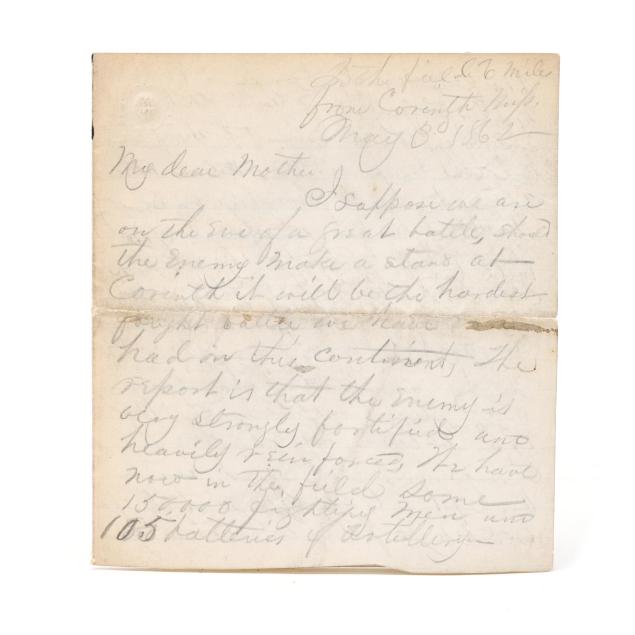 In the field 6 miles
from Corinth Miss.
May 6 1862
My dear Mother
I suppose we are
on the Eve of a great battle, should
the Enemy make a stand at
Corinth it will be the hardest
fought battle we have
had on this continent, The
report is that the Enemy is
very strongly fortified and
heavily reinforced, We have
now in the field some
150,000 fighting men and
105 batteries of Artillery